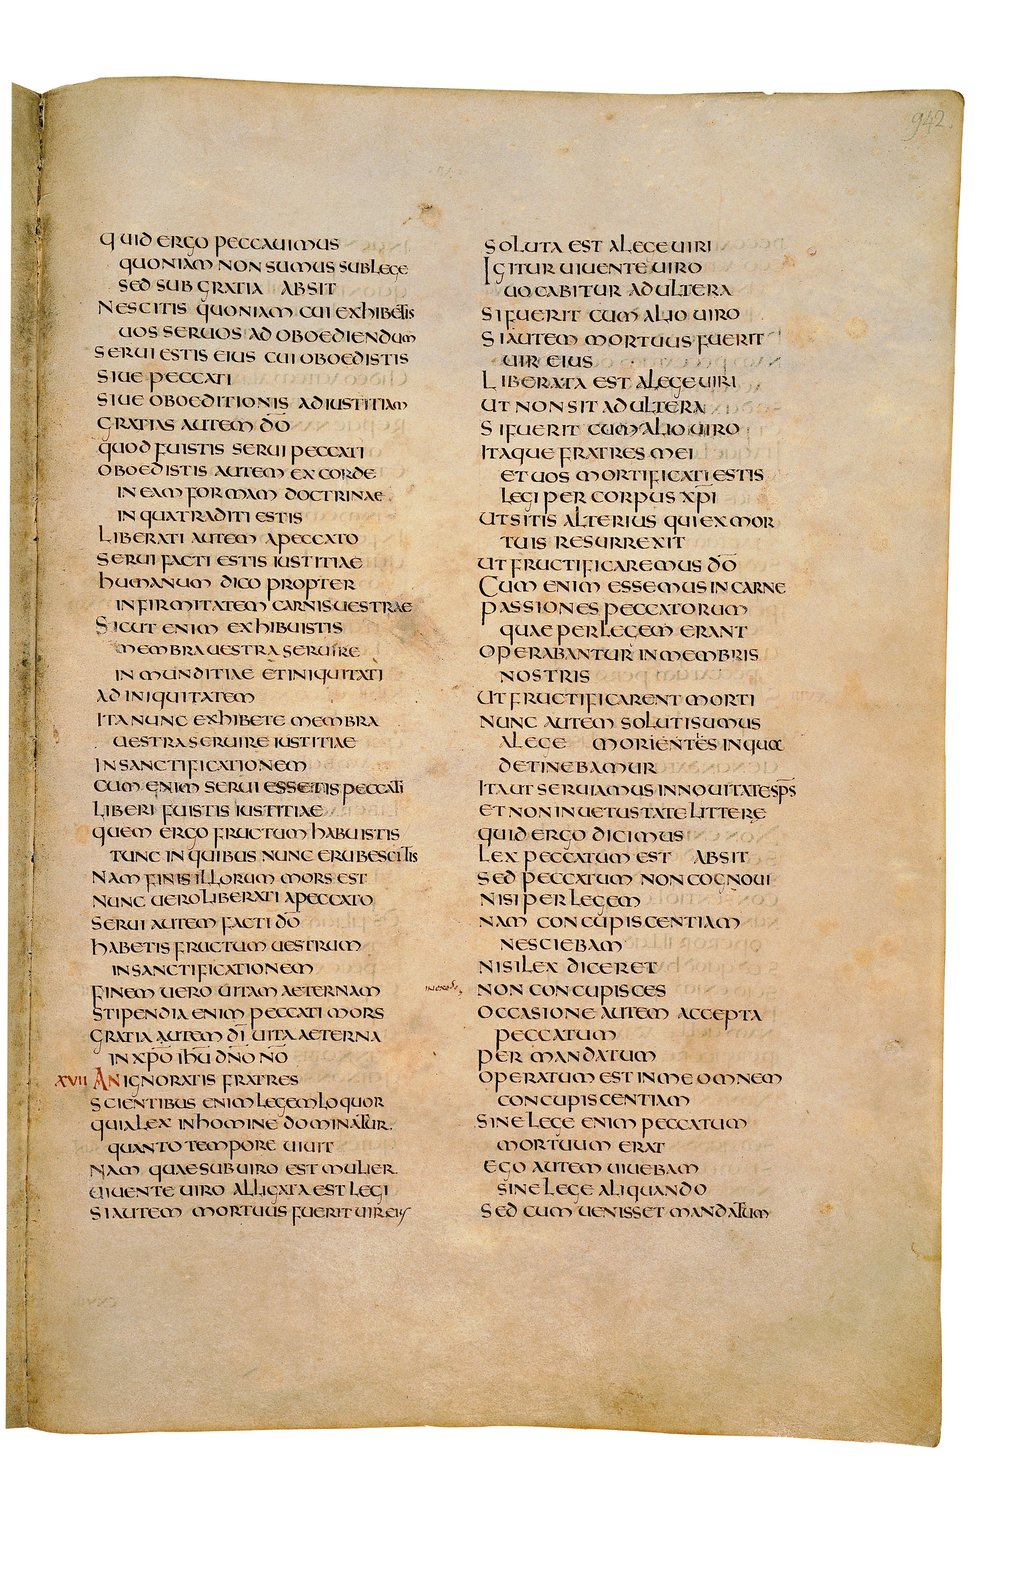 942.
QUID ERGO PECCAUIMUS
QUONIAM NON SUMUS SUB LEGE
SED SUB GRATIA ABSIT
NESCITIS QUONIAM CUI EXHIBETIS
UOS SERUOS AD OBOEDIENDUM
SERUI ESTIS EIUS CUI OBOEDISTIS
SIUE PECCATI
SIUE OBOEDITIONIS AD IUSTITIAM
GRATIAS AUTEM D̅O̅
QUOD FUISTIS SERUI PECCATI
OBOEDISTIS AUTEM EX CORDE
IN EAM FORMAM DOCTRINAE
IN QUA TRADITI ESTIS
LIBERATI AUTEM A PECCATO
SERUI FACTI ESTIS IUSTITIAE
HUMANUM DICO PROPTER
INFIRMITATEM CARNIS UESTRAE
SICUT ENIM EXHIBUISTIS
MEMBRA UESTRA SERUIRE
INMUNDITIAE ET INIQUITATI
AD INIQUITATEM
ITA NUNC EXHIBETE MEMBRA
UESTRA SERUIRE IUSTITIAE
IN SANCTIFICATIONEM
CUM ENIM SERUI ESSETIS PECCATI
LIBERI FUISTIS IUSTITIAE
QUEM ERGO FRUCTUM HABUISTIS
TUNC IN QUIBUS NUNC ERUBESCITIS
NAM FINIS ILLORUM MORS EST
NUNC UERO LIBERATI A PECCATO
SERUI AUTEM FACTI D̅O̅
HABETIS FRUCTUM UESTRUM
IN SANCTIFICATIONEM
FINEM UERO UITAM AETERNAM
STIPENDIA ENIM PECCATI MORS
GRATIA AUTEM D̅I̅ UITA AETERNA
IN X̅P̅O̅ I̅H̅U̅ D̅N̅O̅ N̅O̅
XVII AN IGNORATIS FRATRES
SCIENTIBUS ENIM LEGEM LOQUOR
QUIA LEX IN HOMINE DOMINATUR
QUANTO TEMPORE UIUIT
NAM QUAE SUB UIRO EST MULIER
UIUENTE UIRO ALLIGATA EST LEGI
SI AUTEM MORTUUS FUERIT UIR EIUS
SOLUTA EST A LEGE UIRI
IGITUR UIUENTE UIRO
UOCABITUR ADULTERA
SI FUERIT CUM ALIO UIRO
SI AUTEM MORTUUS FUERIT
UIR EIUS
LIBERATA EST A LEGE UIRI
UT NON SIT ADULTERA
SI FUERIT CUM ALIO UIRO
ITAQUE FRATRES MEI
ET UOS MORTIFICATI ESTIS
LEGI PER CORPUS X̅P̅I̅
UT SITIS ALTERIUS QUI EX MOR
TUIS RESURREXIT
UT FRUCTIFICAREMUS D̅O̅
CUM ENIM ESSEMUS IN CARNE
PASSIONES PECCATORUM
QUAE PER LEGEM ERANT
OPERABANTUR IN MEMBRIS
NOSTRIS
UT FRUCTIFICARENT MORTI
NUNC AUTEM SOLUTI SUMUS
A LEGE MORIENTES IN QUA
DETINEBAMUR
ITA UT SERUIAMUS IN NOUITATE S̅P̅S̅
ET NON IN UETUSTATE LITTERE
QUID ERGO DICIMUS
LEX PECCATUM EST ABSIT
SED PECCATUM NON COGNOUI
NISI PER LEGEM
NAM CONCUPISCENTIAM
NESCIEBAM
NISI LEX DICERET
NON CONCUPISCES
OCCASIONE AUTEM ACCEPTA
PECCATUM
PER MANDATUM
OPERATUM EST IN ME OMNEM
CONCUPISCENTIAM
SINE LEGE ENIM PECCATUM
MORTUUM ERAT
EGO AUTEM UIUEBAM
SINE LEGE ALIQUANDO
SED CUM UENISSET MANDATUM